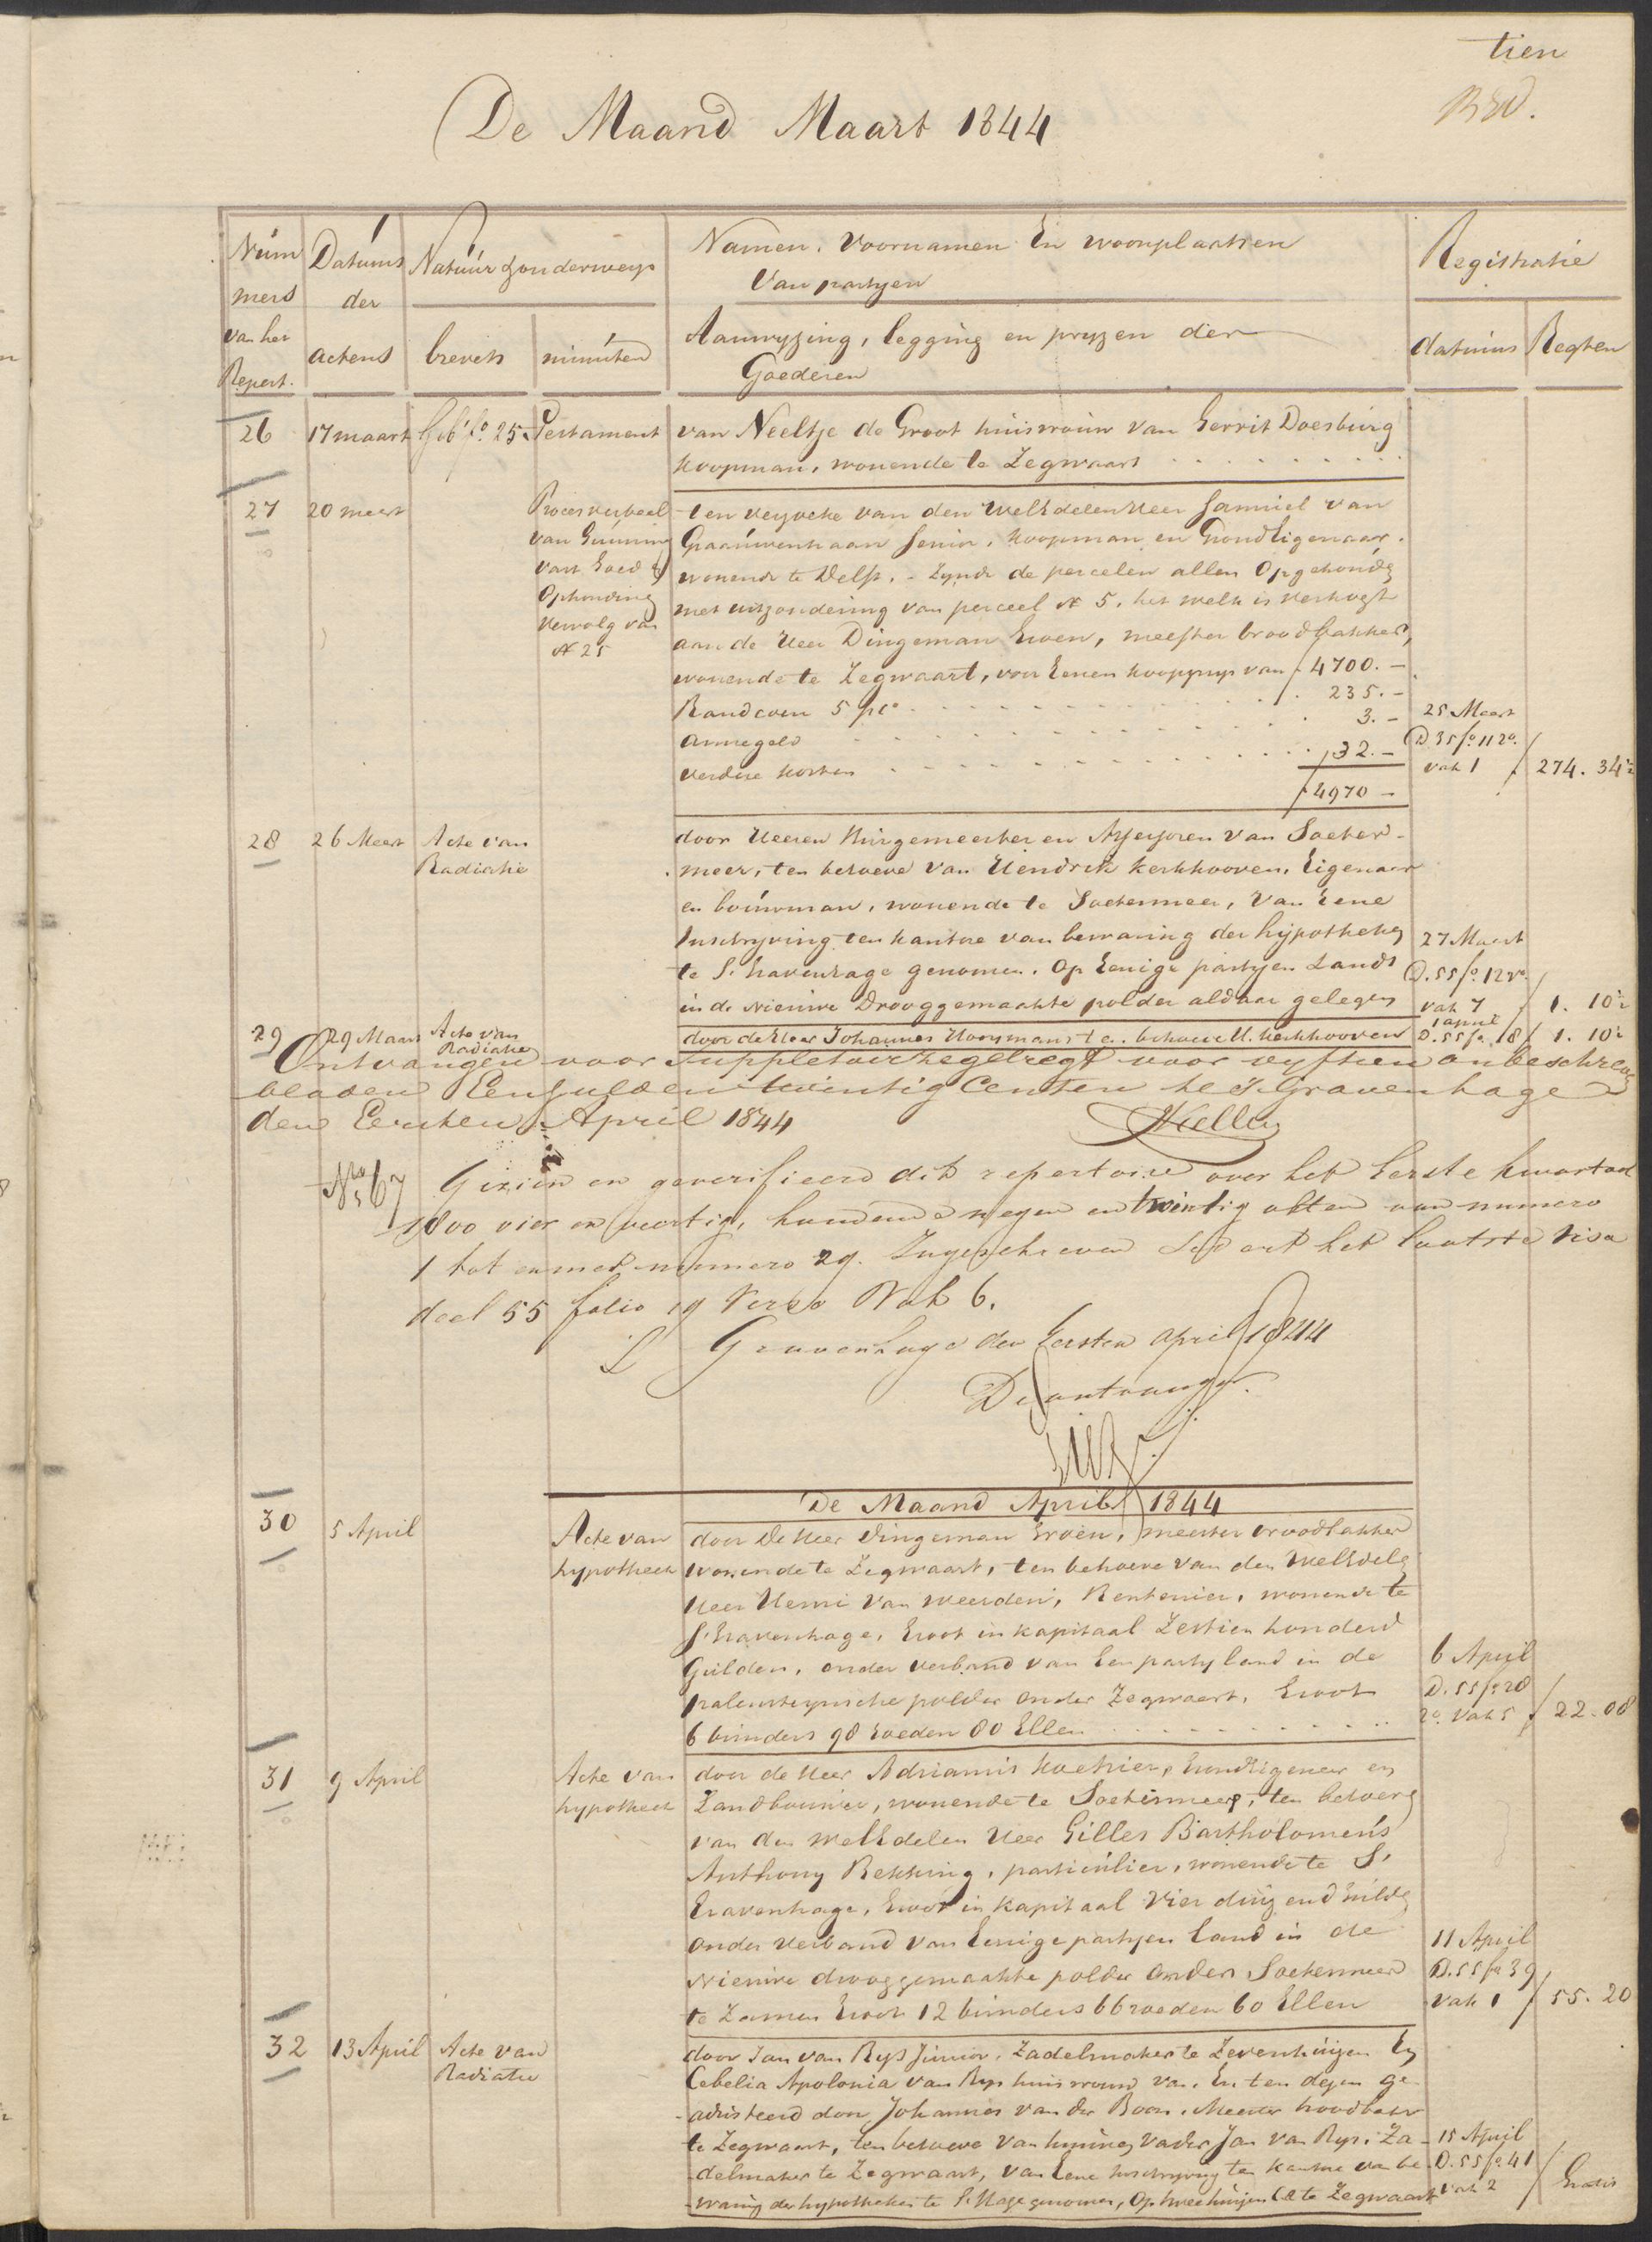 tien
De Maand Maart 1844
Num
mers
van het
Repert.
Datums
der
actens
Natuur
brevets
minuten
Namen, Voornamen En woonplaatsen
Van partyen
Aanwyzing, legging en pryzen der
Goederen
Registratie
datums
Regten
26
17 maart
Testament
van Neeltje de Groot huisvrouw van Gerrit Doesburg
koopman, wonende te Zegwaart
27
20 meert
Proces verbaal
van Gunning
vast Goed &
Ophouding
vervolg van
N 25
ten verzoeke van den WelEdelen Heer Samuel van
Graauwenhaan Senior, koopman en Grond Eigenaar,
wonende te Delft, - Zynde de percelen allen Opgehoude
met uitzondering van perceel N 5, het welk is verkogt
aan de Heer Dingeman Groen, meester broodbakker,
wonende te Zegwaart, voor Eenen koopprys van f 4700.-
Randcoen 5 pCo . 235.-
Armegeld 3.-
verdere kosten 32.-
f 4970 -
25 Meert
D 35 fo 11 Ro.
vak 1
f 274. 34½
28
26 Meert
Acte van
Radiatie
door Heeren Burgemeester en Assessoren van Soeter-
meer, ten behoeve van Hendrik Kerkhooven, Eigenaar
en bouwman, wonende te Soetermeer, Van Eene
Inschryving ten kantore van bewaring der hypotheke
te S. Gravenhage genomen. Op Eenige partyen Lands
in de Nieuwe Drooggemaakte polder aldaar gelegen
27 Maart
D. 55 fo 12 Vo
vak 7
f 1. 10½
29
29 Maart
Acte van
Radiatie
door de Heer Johannes Hoosmans ten behoeve H. Kerkhooven
1 april
D. 55 fo 18
f 1. 10½
Ontvangen voor suppletoir Zegelregt voor vyftien onbeschreve
bladen Een Gulden twintig Centen te S. Gravenhage
den Eersten April 1844
No 67
Gezien en geverifieerd dit repertoire over het Eerste kwartaal
1800 vier en veertig, houdende negen en twintig akten van numero
1 tot en met numero 29. Ingeschreven sedert het laatste visa
deel 55 folio 19 Verso Vak 6.
S Gravenhage den Eersten April 1844
De ontvanger.
De Maand April 1844
30
5 April
Acte van
hypotheek
door De Heer Dingeman Groen, meester broodbakker
wonende te Zegwaart, ten behoeve van den WelEdele
Heer Henri van Weerden, Rentenier, wonende te
S' Gravenhage, Groot in kapitaal Zestien honderd
Gulden, onder verband van Een party land in de
palensteynsche polder onder Zegwaart, Groot
6 bunders 98 roeden 80 Ellen
6 April
D. 55 fo 20
Ro. Vak 5
f 22.08
31
9 April
Acte van
hypotheek
door de Heer Adrianus Koetsier, Grond Eigenaar en
Landbouwer, wonende te Soetermeer, ten behoeve
van den WelEdelen Heer Gilles Bartholomeus
Anthony Rekking, particulier, wonende te S'
Gravenhage, Groot in kapitaal Vier duizend Gulde
onder verband van Eenige partyen land in de
Nieuwe drooggemaakte polder onder Soetermeer
te Zamen Groot 12 bunders 66 roeden 60 Ellen
11 April
D. 55 fo 39
Vak 1
f 55.20
32
13 April
Acte van
Radiatie
door Jan van Rys Junior, Zadelmaker te Zevenhuizen En
Cebelia Apolonia van Rys huisvrouw van, En ten dezen ge
adsisteerd door Johannes van der Boon, Meester broodbakr
te Zegwaart, ten behoeve van hunnen Vader Jan van Rys, Za-
delmaker te Zegwaart, van Eene Inschryving ten kantore van be
waring der hypotheken te S. Hage genomen, Op twee huizen CA te Zegwaart
15 April
D. 55 fo 41
vak 2
Gratis